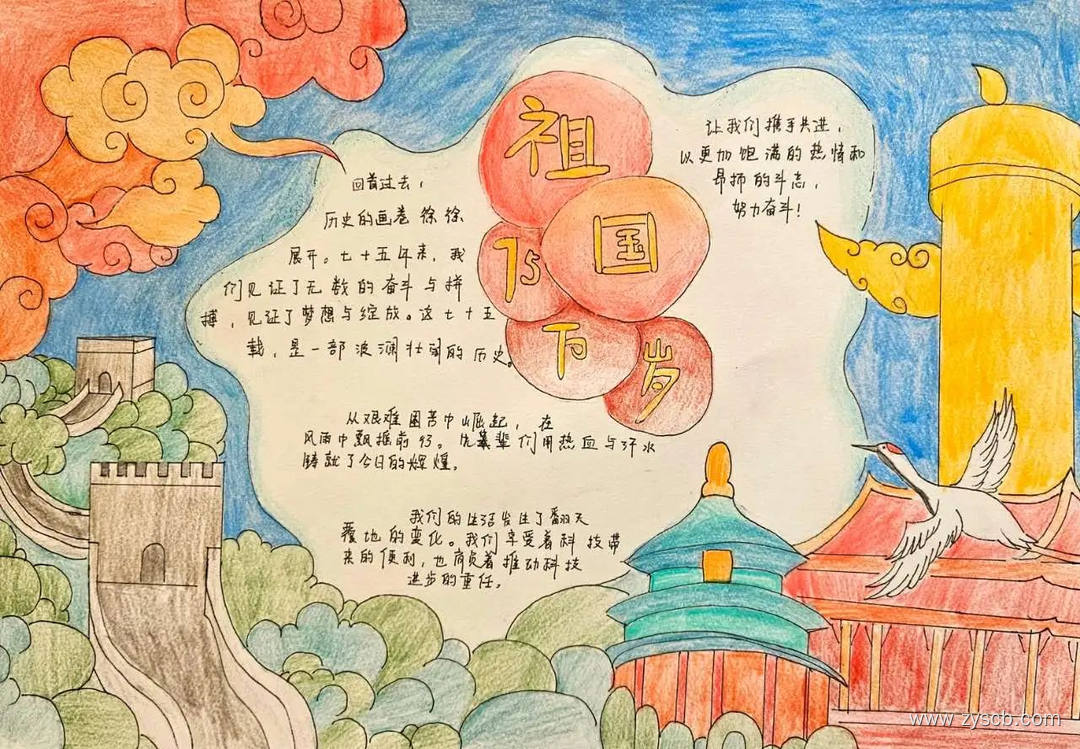 祖国
75
万岁
回首过去，
历史的画卷徐徐
展开。七十五年来，我
们见证了无数的奋斗与拼
搏，见证了梦想与绽放。这七十五
载，是一部波澜壮阔的历史。
从艰难困苦中崛起，在
风雨中飘摇前行。先辈们用热血与汗水
铸就了今日的辉煌。
我们的生活发生了翻天
覆地的变化。我们享受着科技带
来的便利，也肩负着推动科技
进步的重任。
让我们携手共进，
以更加饱满的热情和
昂扬的斗志，
努力奋斗！
www.zyscb.com